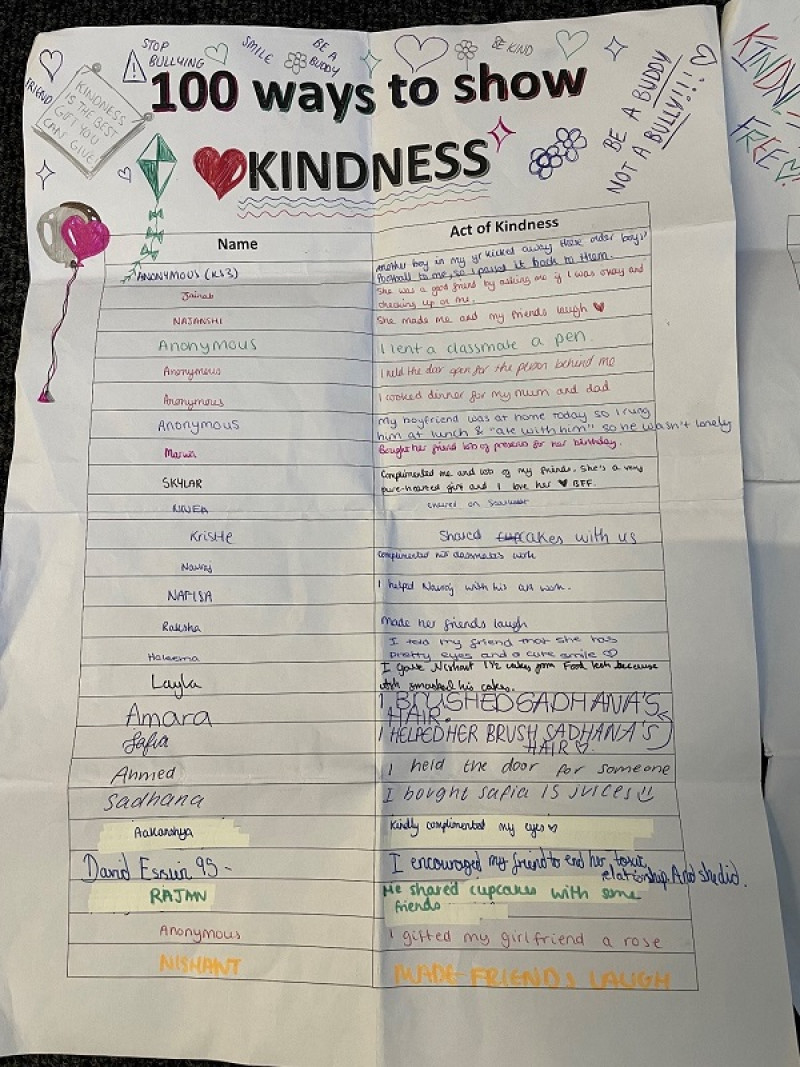 STOP BULLYING
SMILE
BE A BUDDY
BE KIND
FRIEND
KINDNESS IS THE BEST GIFT YOU CAN GIVE!
100 ways to show
KINDNESS
BE A BUDDY
NOT A BULLY!!!
FREE
Name
Act of Kindness
ANONYMOUS (KS3)
Another boy in my yr kicked away these older boys'
football to me, so I passed it back to them.
Jainab
She was a good friend by asking me if I was okay and
checking up on me.
NAJANSHI
She made me and my friends laugh
Anonymous
I lent a classmate a pen.
Anonymous
I held the door open for the person behind me
Anonymous
I cooked dinner for my mum and dad
Anonymous
My boyfriend was at home today so I rung
him at lunch & "ate with him" so he wasn't lonely
Marwa
Bought her friend lots of presents for her birthday.
SKYLAR
Complimented me and lots of my friends. She's a very
pure-hearted girl and I love her BFF.
on
Kristie
Shared cakes with us
complimented his classmates work
NAFISA
I helped with his art work.
Raksha
Made her friends laugh
Haleema
I told my friend that she has
pretty eyes and a cute smile
Layla
I gave Nishant 1½ cakes from Food tech because
smashed his cakes.
Amara
I BRUSHED SADHANA'S
HAIR.
Safia
I HELPED HER BRUSH SADHANA'S
HAIR
Ahmed
I held the door for someone
Sadhana
I bought safia 15 juices
Aakanshya
Kindly complimented my eyes
David Essuin 9S -
I encouraged my friend to end her toxic
relationship. And she did.
RAJAN
He shared cupcakes with some
friends
Anonymous
I gifted my girlfriend a rose
NISHANT
MADE FRIENDS LAUGH